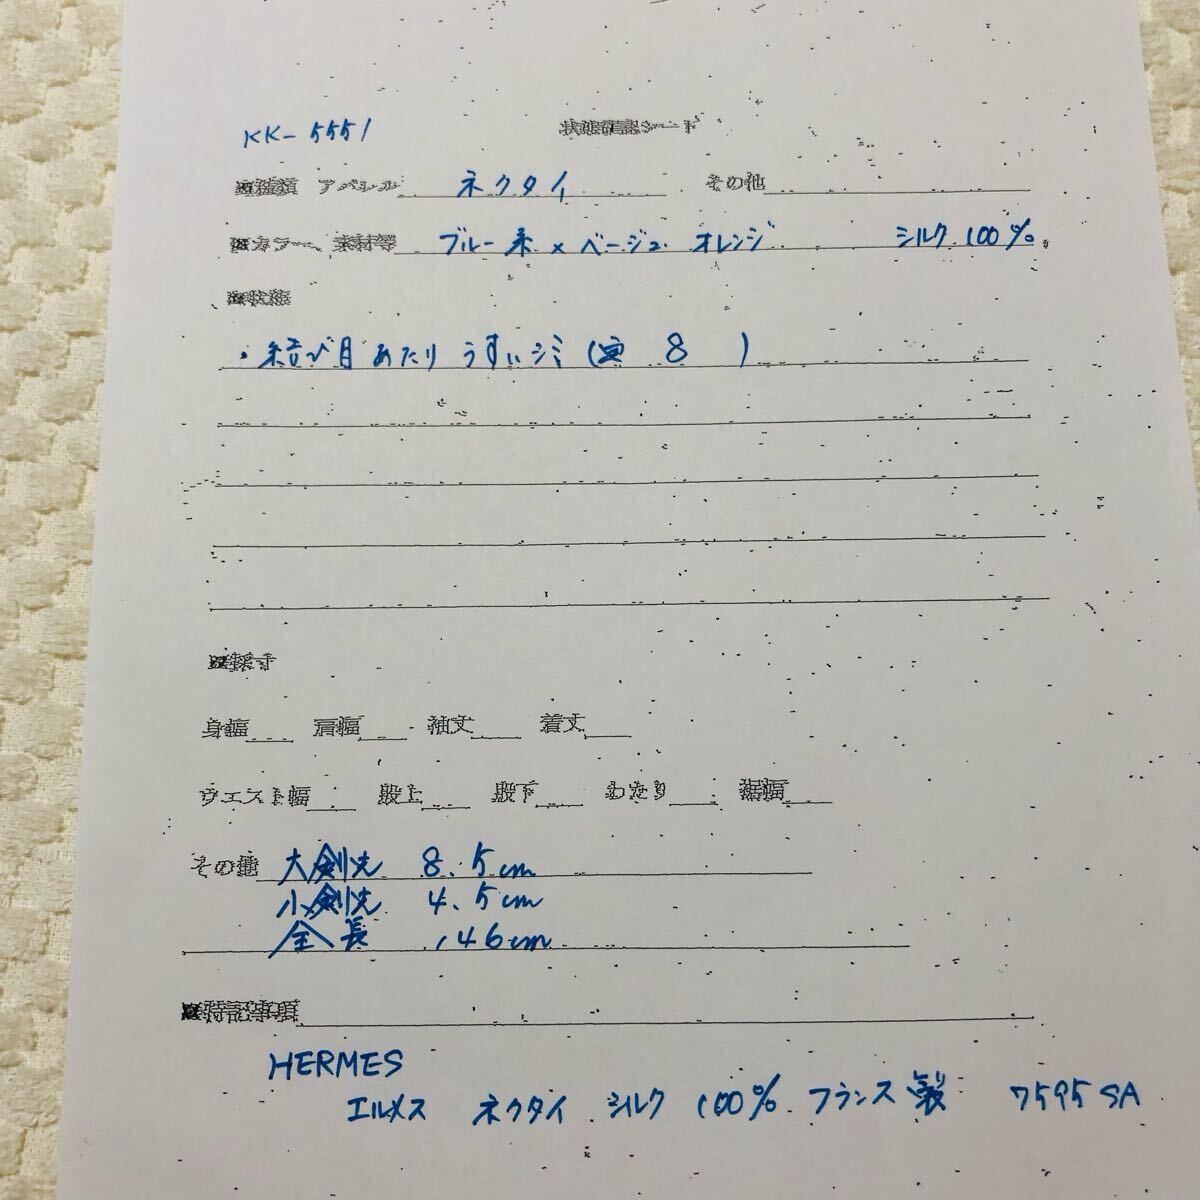 KK-5551 状態確認シート
■種類 アパレル ネクタイ その他
■カラー、素材等 ブルー系×ベージュ オレンジ シルク 100%
■状態
・結び目あたり うすいシミ(写 8 )
■採寸
身幅 肩幅 袖丈 着丈
ウエスト幅 股上 股下 わたり 裾幅
その他 大剣先 8.5cm
小剣先 4.5cm
全長 146cm
■特記事項
HERMES
エルメス ネクタイ シルク 100% フランス製 7595SA